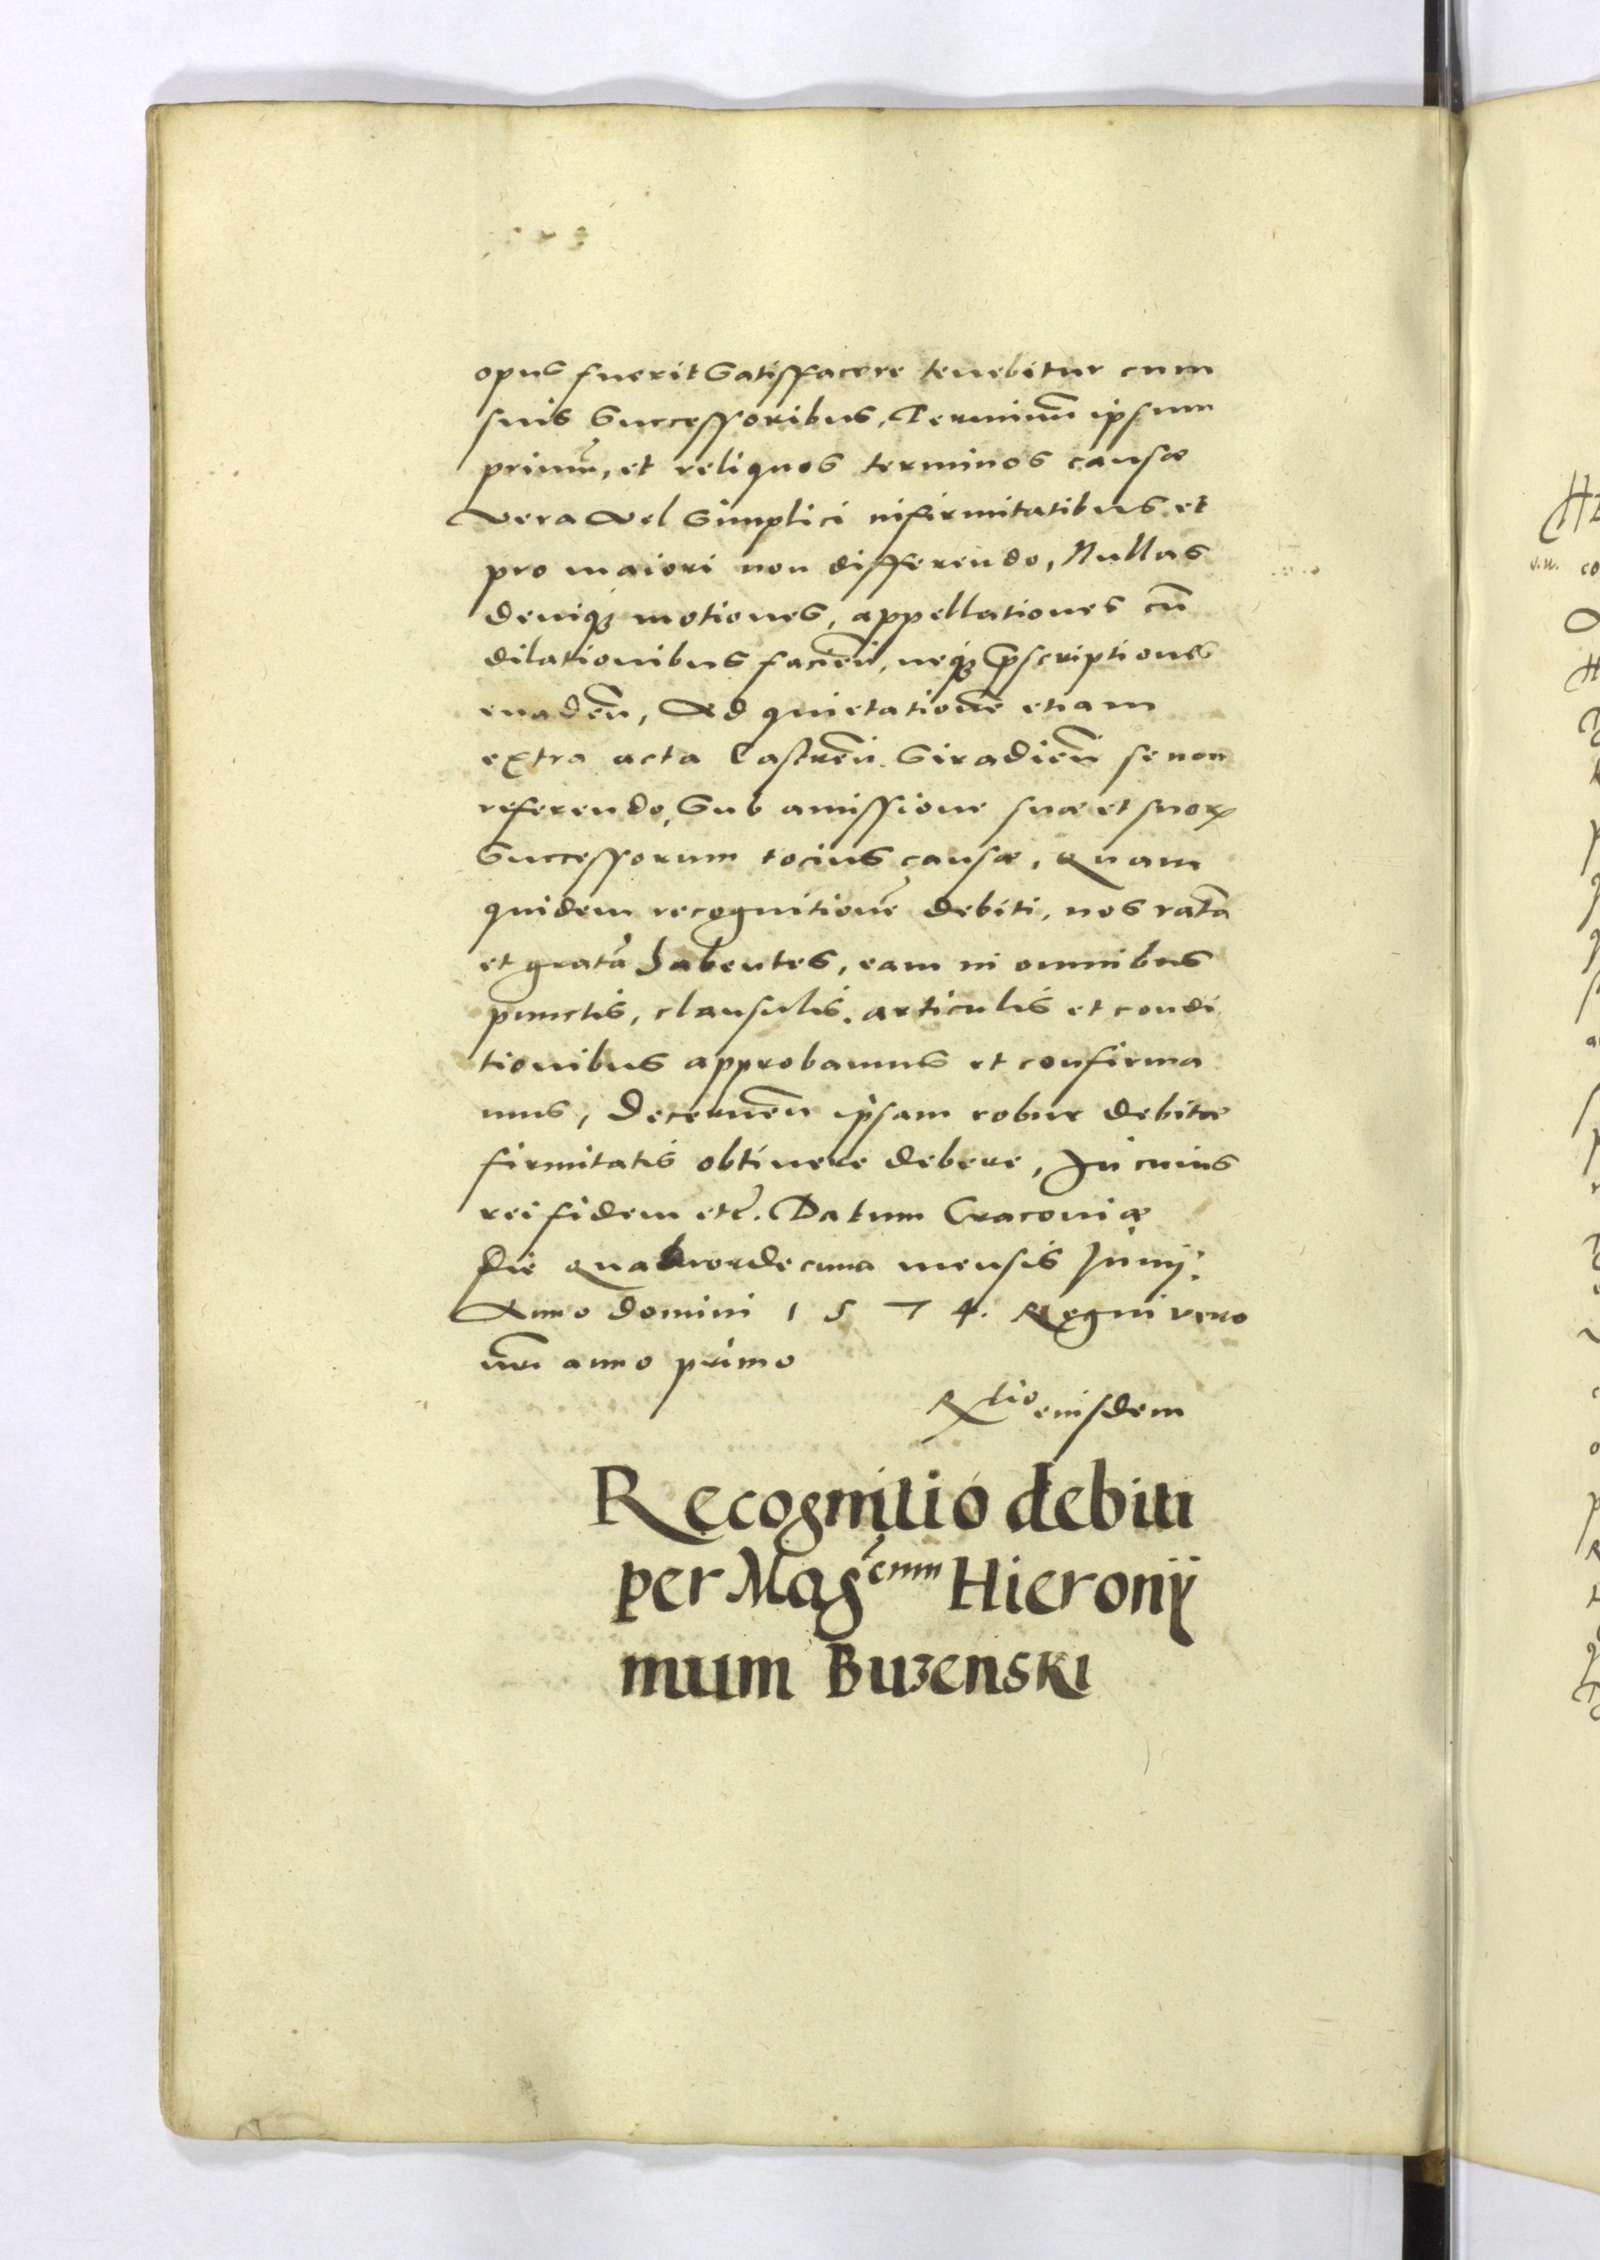 opus fuerit Satisfacere tenebitur cum
suis Successoribus, Terminũ ipsum
primũ, et reliquos terminos causæ
vera vel Simplici infirmitatibus et
pro maiori non differendo, Nullas
deniqȝ motiones, appellationes cũ
dilationibus facieñ, neqȝ p̃scriptiones
euadeñ, Ad quietationẽ etiam
extra acta Castreñ Siradieñ se non
referendo, Sub amissione suæ et suoꝝ
Successorum tocius causæ, Quam
quidem recognitionẽ debiti, nos ratã
et gratã habentes, eam in omnibus
punctis, clausulis, articulis et condi
tionibus approbamus et confirma
mus, Decerneñ ipsam robur debitæ
firmitatis obtinere debere, In cuius
rei fidem etc̃. Datum Cracouiæ
Die Quatuordecima mensis Junij:
Anno domini 1 5 7 4. Regni vero
nr̃i anno primo
Rtio eiusdem
Recognitio debiti
per Mag̃cum Hierony
mum Buzenski
v.n. co